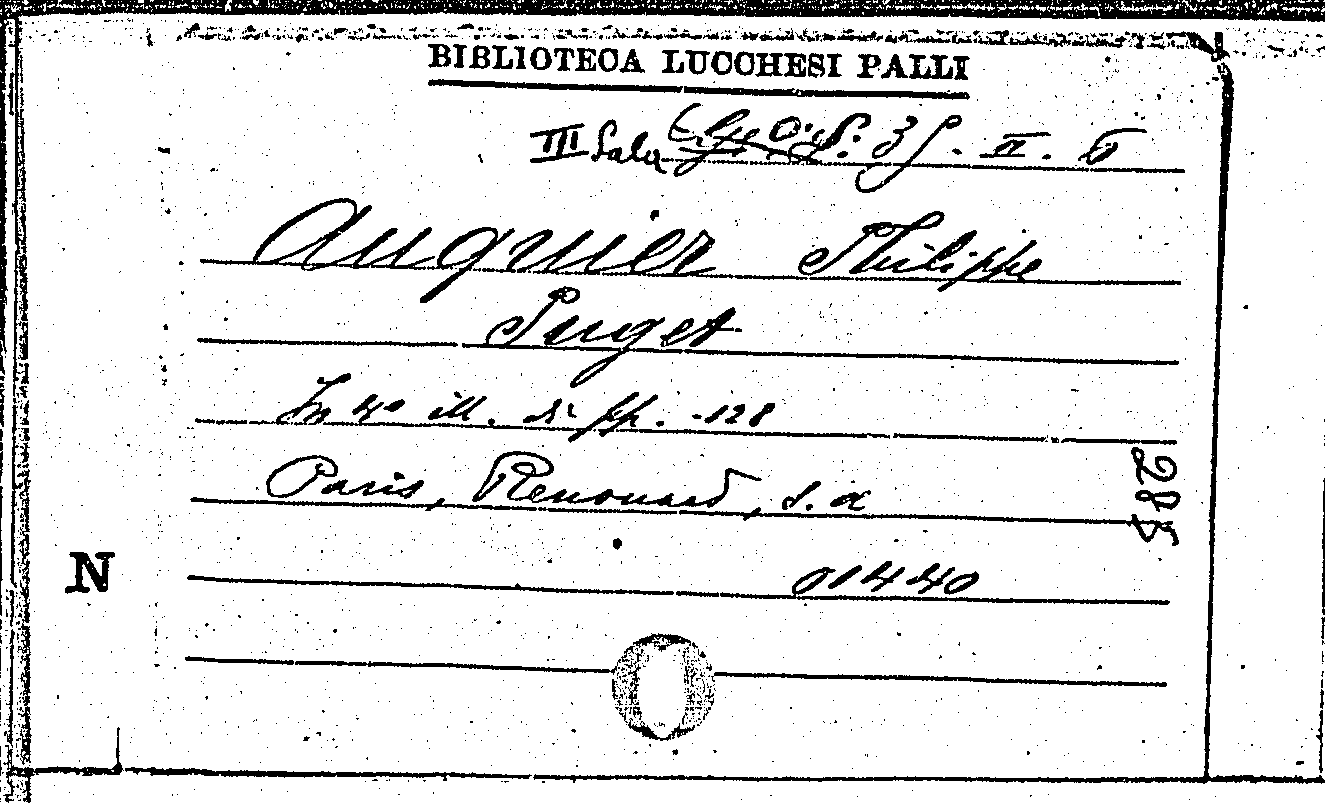 BIBLIOTECA LUCCHESI PALLI
III Sala 35. II. 6
Auquier Philippe
Puget
In 4º ill. di pp. 128
Paris, Renouard, s. a
285
N
01440